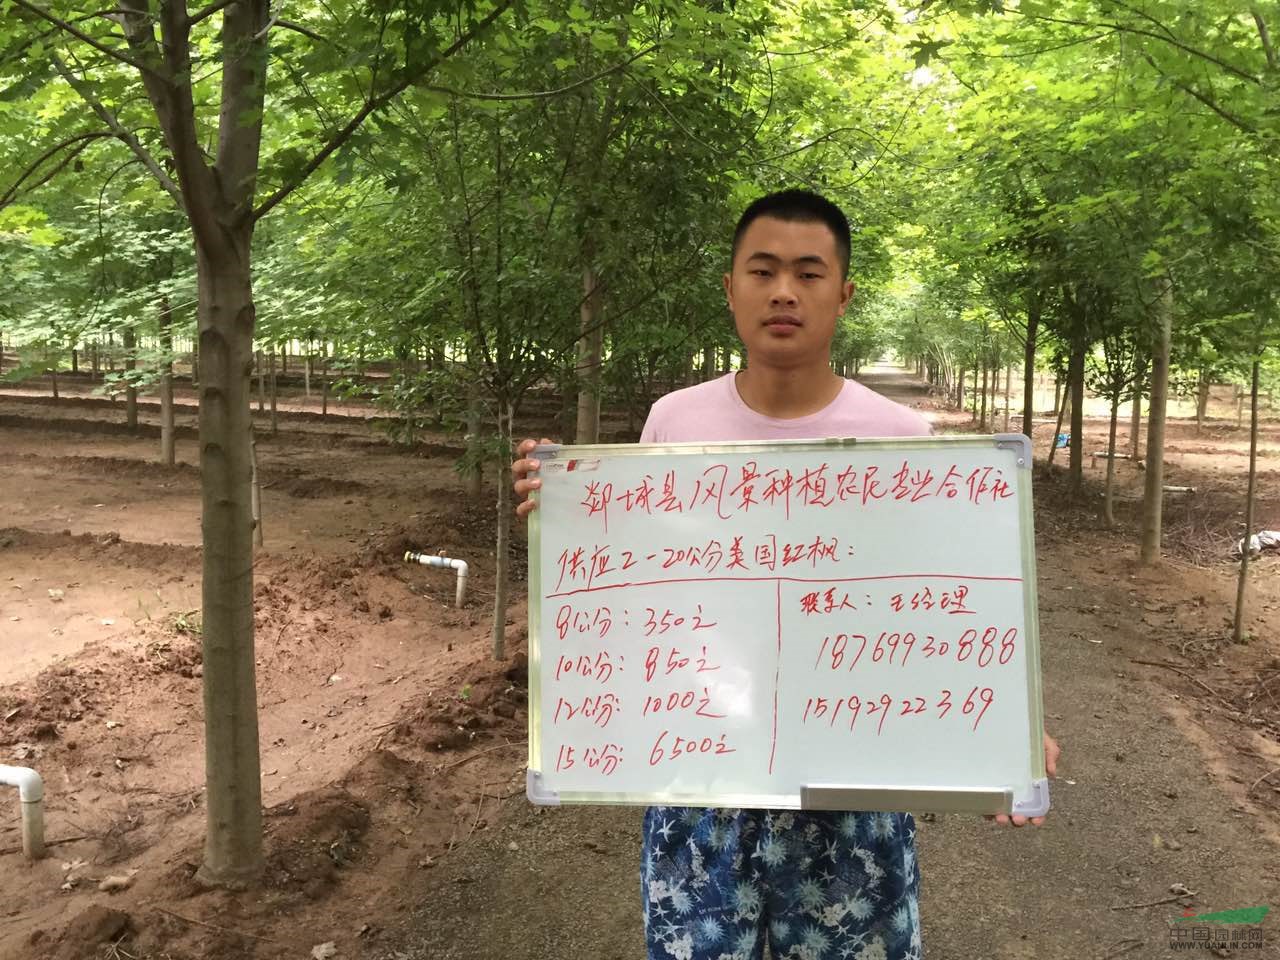 郯城县风景种植农民专业合作社
供应2-20公分美国红枫：
8公分：350元
10公分：850元
12公分：1000元
15公分：6500元
联系人：王经理
18769930888
15192922369
中国园林网
WWW.YUANLIN.COM